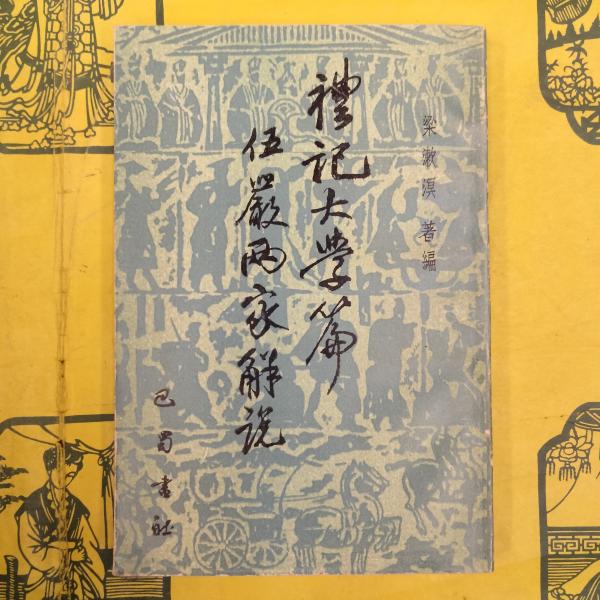 梁漱溟 著編
禮記大學篇
伍嚴兩家解說
巴蜀書社